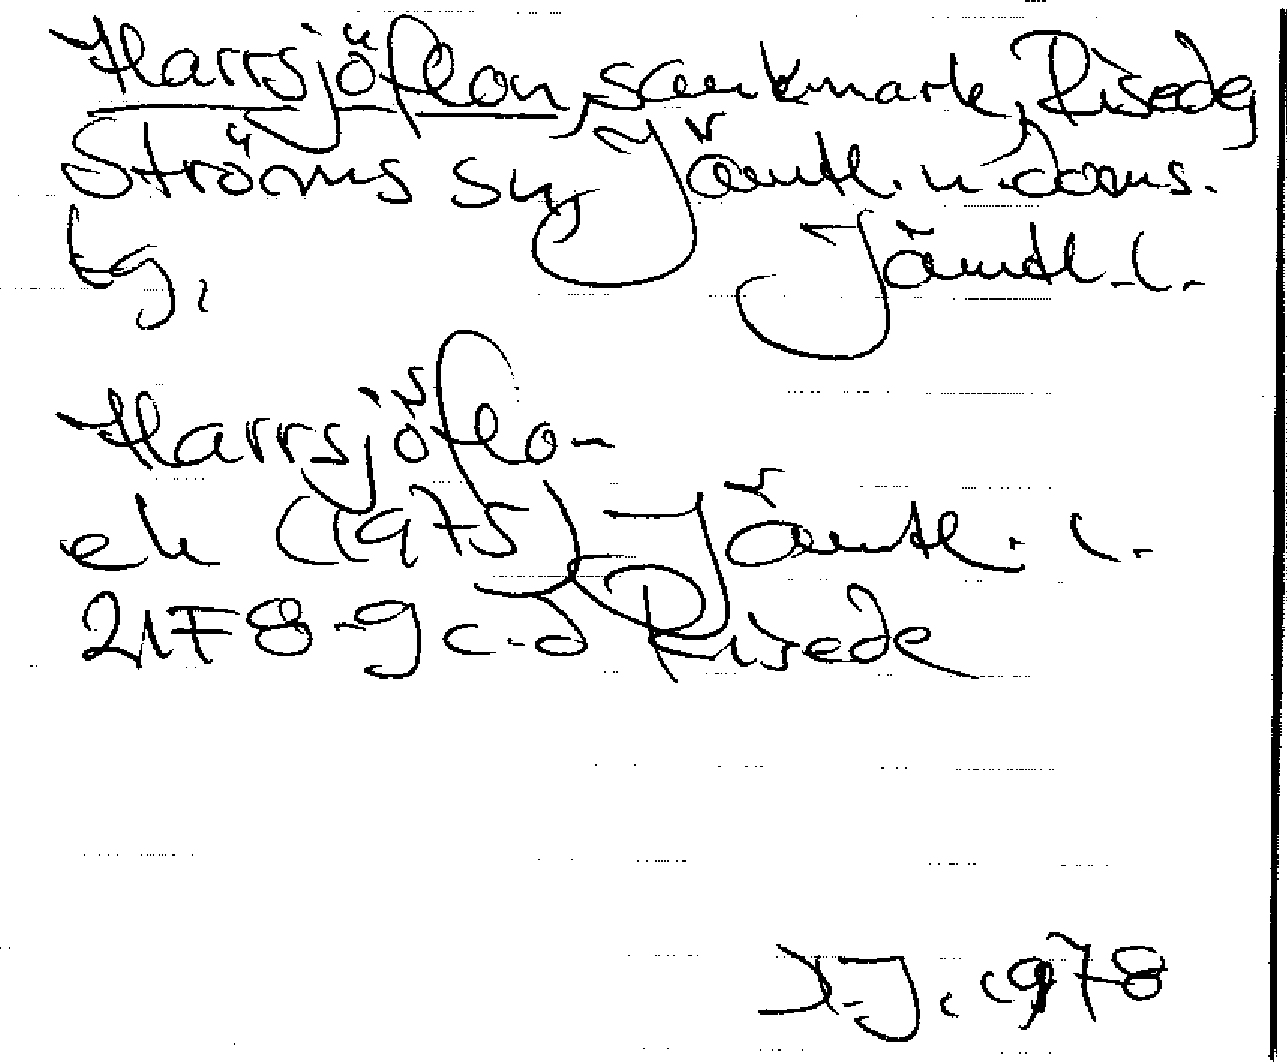 Harrsjöflon, sankmark, Risede,
Ströms sn, Jämtl. n. doms.
tg, Jämtl. l.
Harrsjöflo-
ek (1975) Jämtl. l.
21F 8-9 c-d Risede
1978